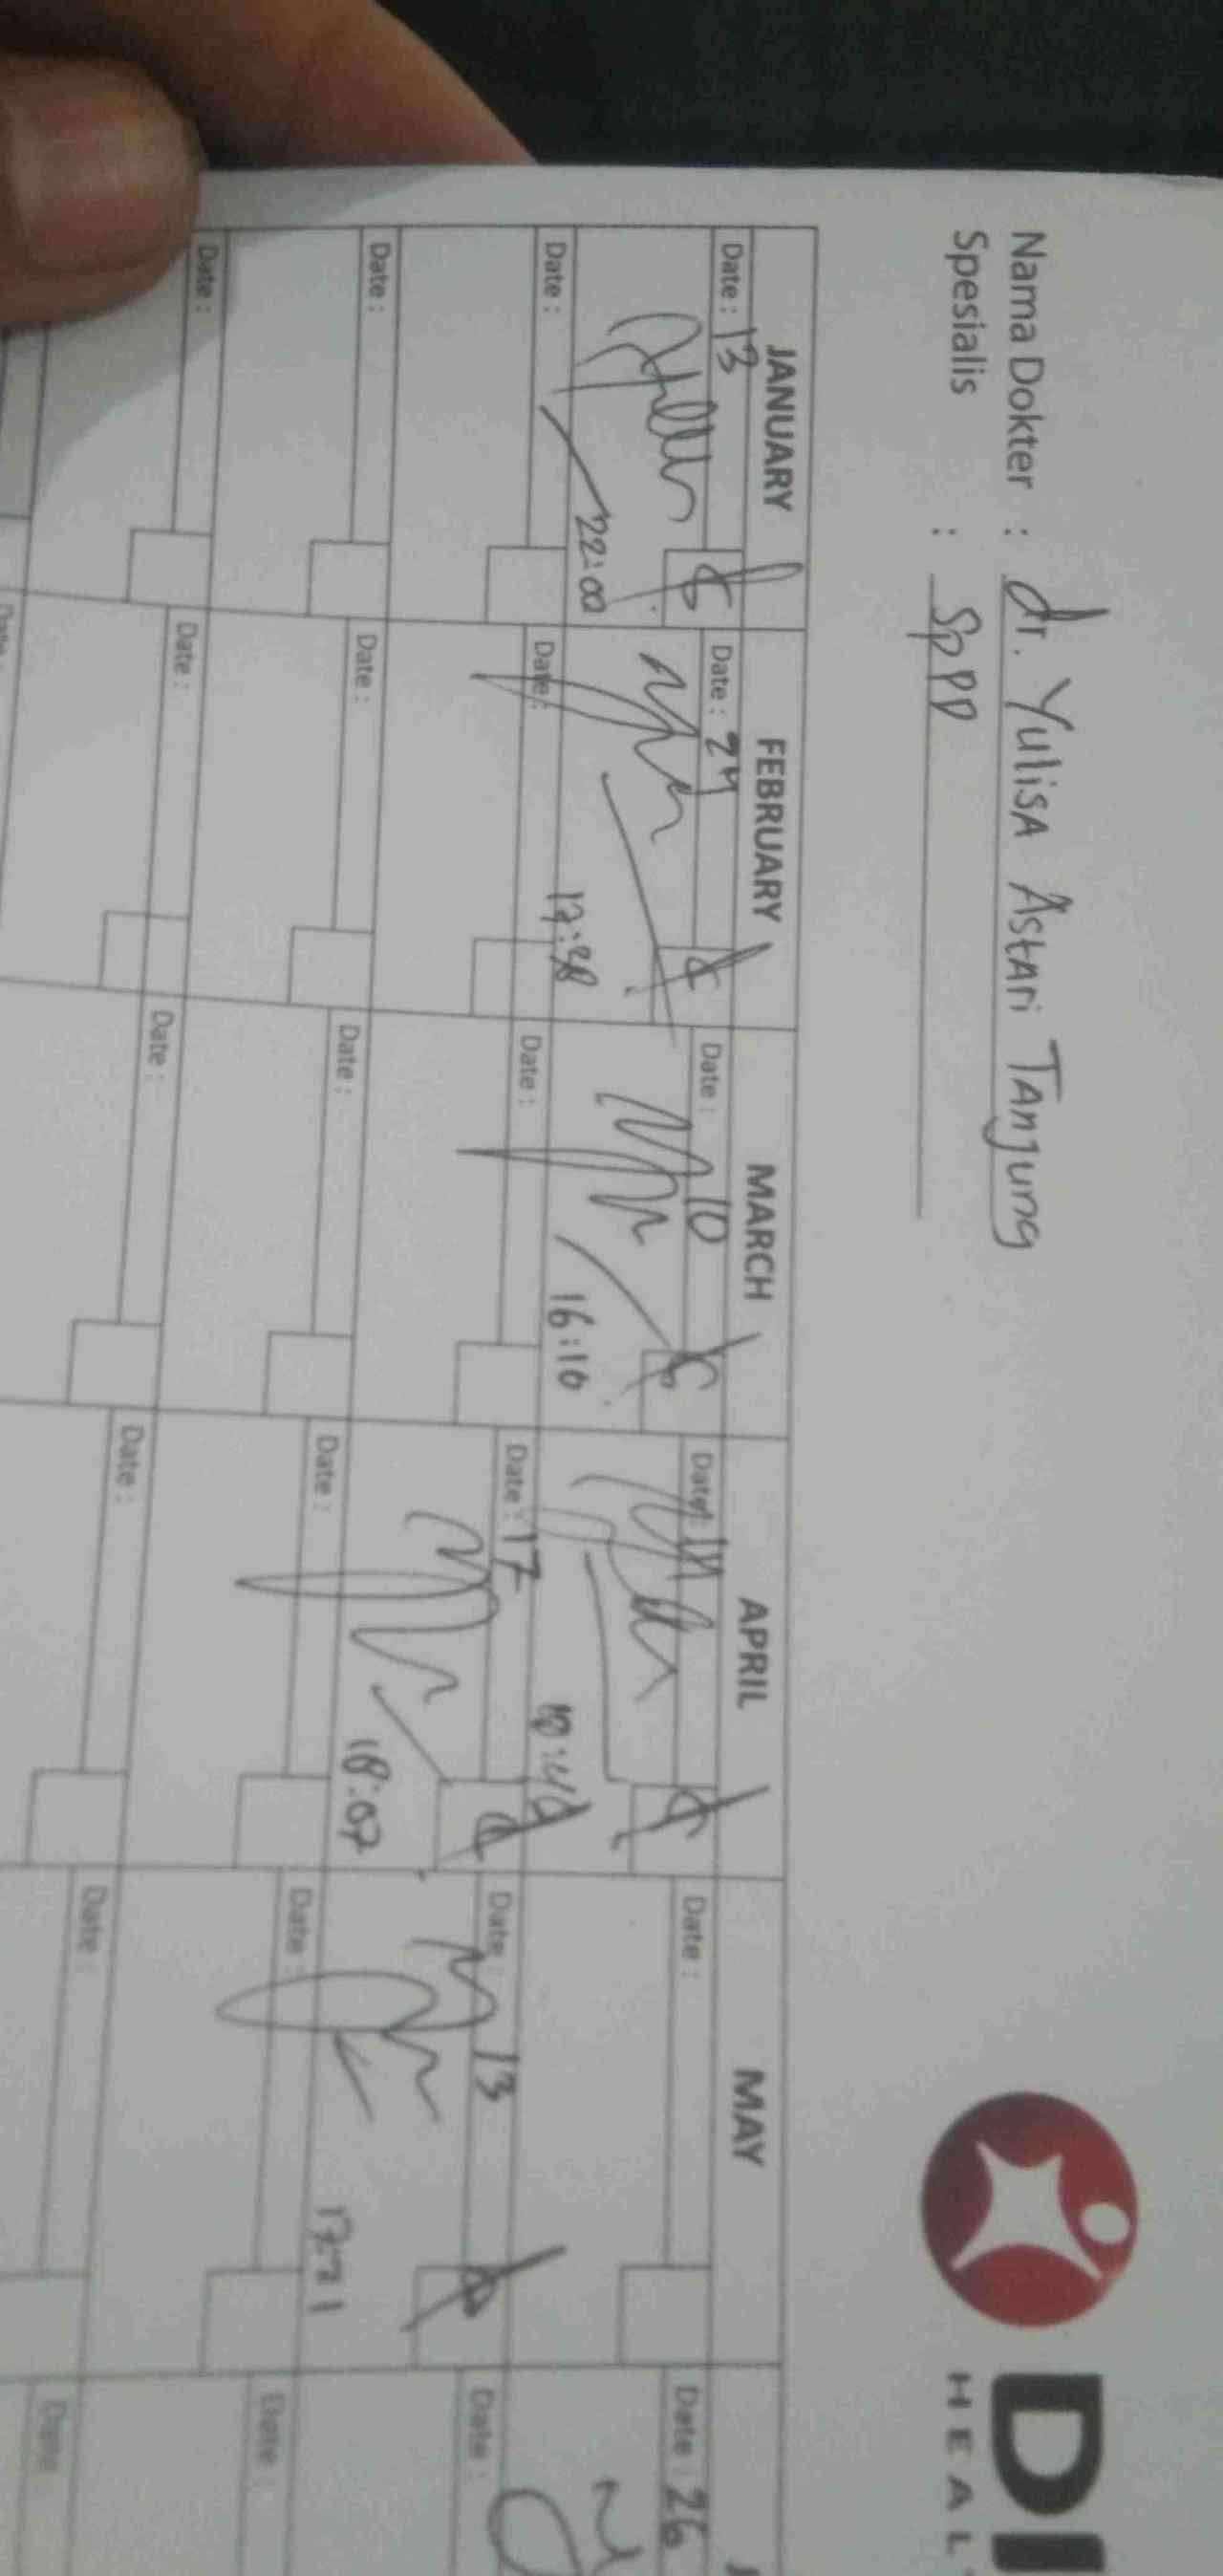 DI
HEAL
Nama Dokter : dr. Yulisa Astari Tanjung
Spesialis : SpPD
JANUARY FEBRUARY MARCH APRIL MAY
Date : 13 Date : 24 Date : 10 Date : Date : Date : 26
22:00 17:38 16:10
Date : Date : Date : Date : 17 Date : 13 Date :
18:07 17:21
Date : Date : Date : Date : Date : Date :
Date : Date : Date : Date : Date : Date :